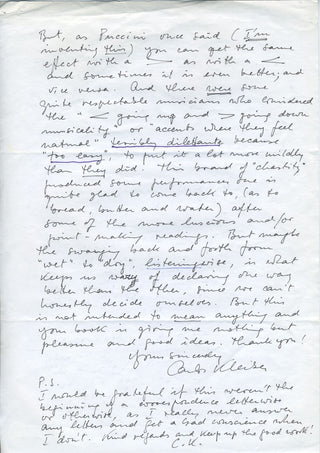 But, as Puccini once said (I'm
inventing this) you can get the same
effect with a > as with a <
and sometimes it is even better, and
vice versa. And there were some
quite respectable musicians who considered
the "< going up and > going down
musicality" or accents where they feel
natural" terribly dilettante because
"too easy", to put it a lot more mildly
than they did! This brand of "chastity"
produced some performances one is
quite glad to come back to, (as to
bread, butter and water) after
some of the more luscious and/or
point-making readings. But maybe
the swaying back and forth from
"wet" to "dry", listeningwise, is what
keeps us wary of declaring one way
better than the other, since we can't
honestly decide ourselves. But this
is not intended to mean anything and
your book is giving me nothing but
pleasure and good ideas. Thank you!
Yours sincerely
Carlos Kleiber
P.S.
I would be grateful if this weren't the
beginning of a correspondence letterwise
or otherwise, as I really never answer
any letters and get a bad conscience when
I don't. Kind regards and keep up the good work!
C.K.